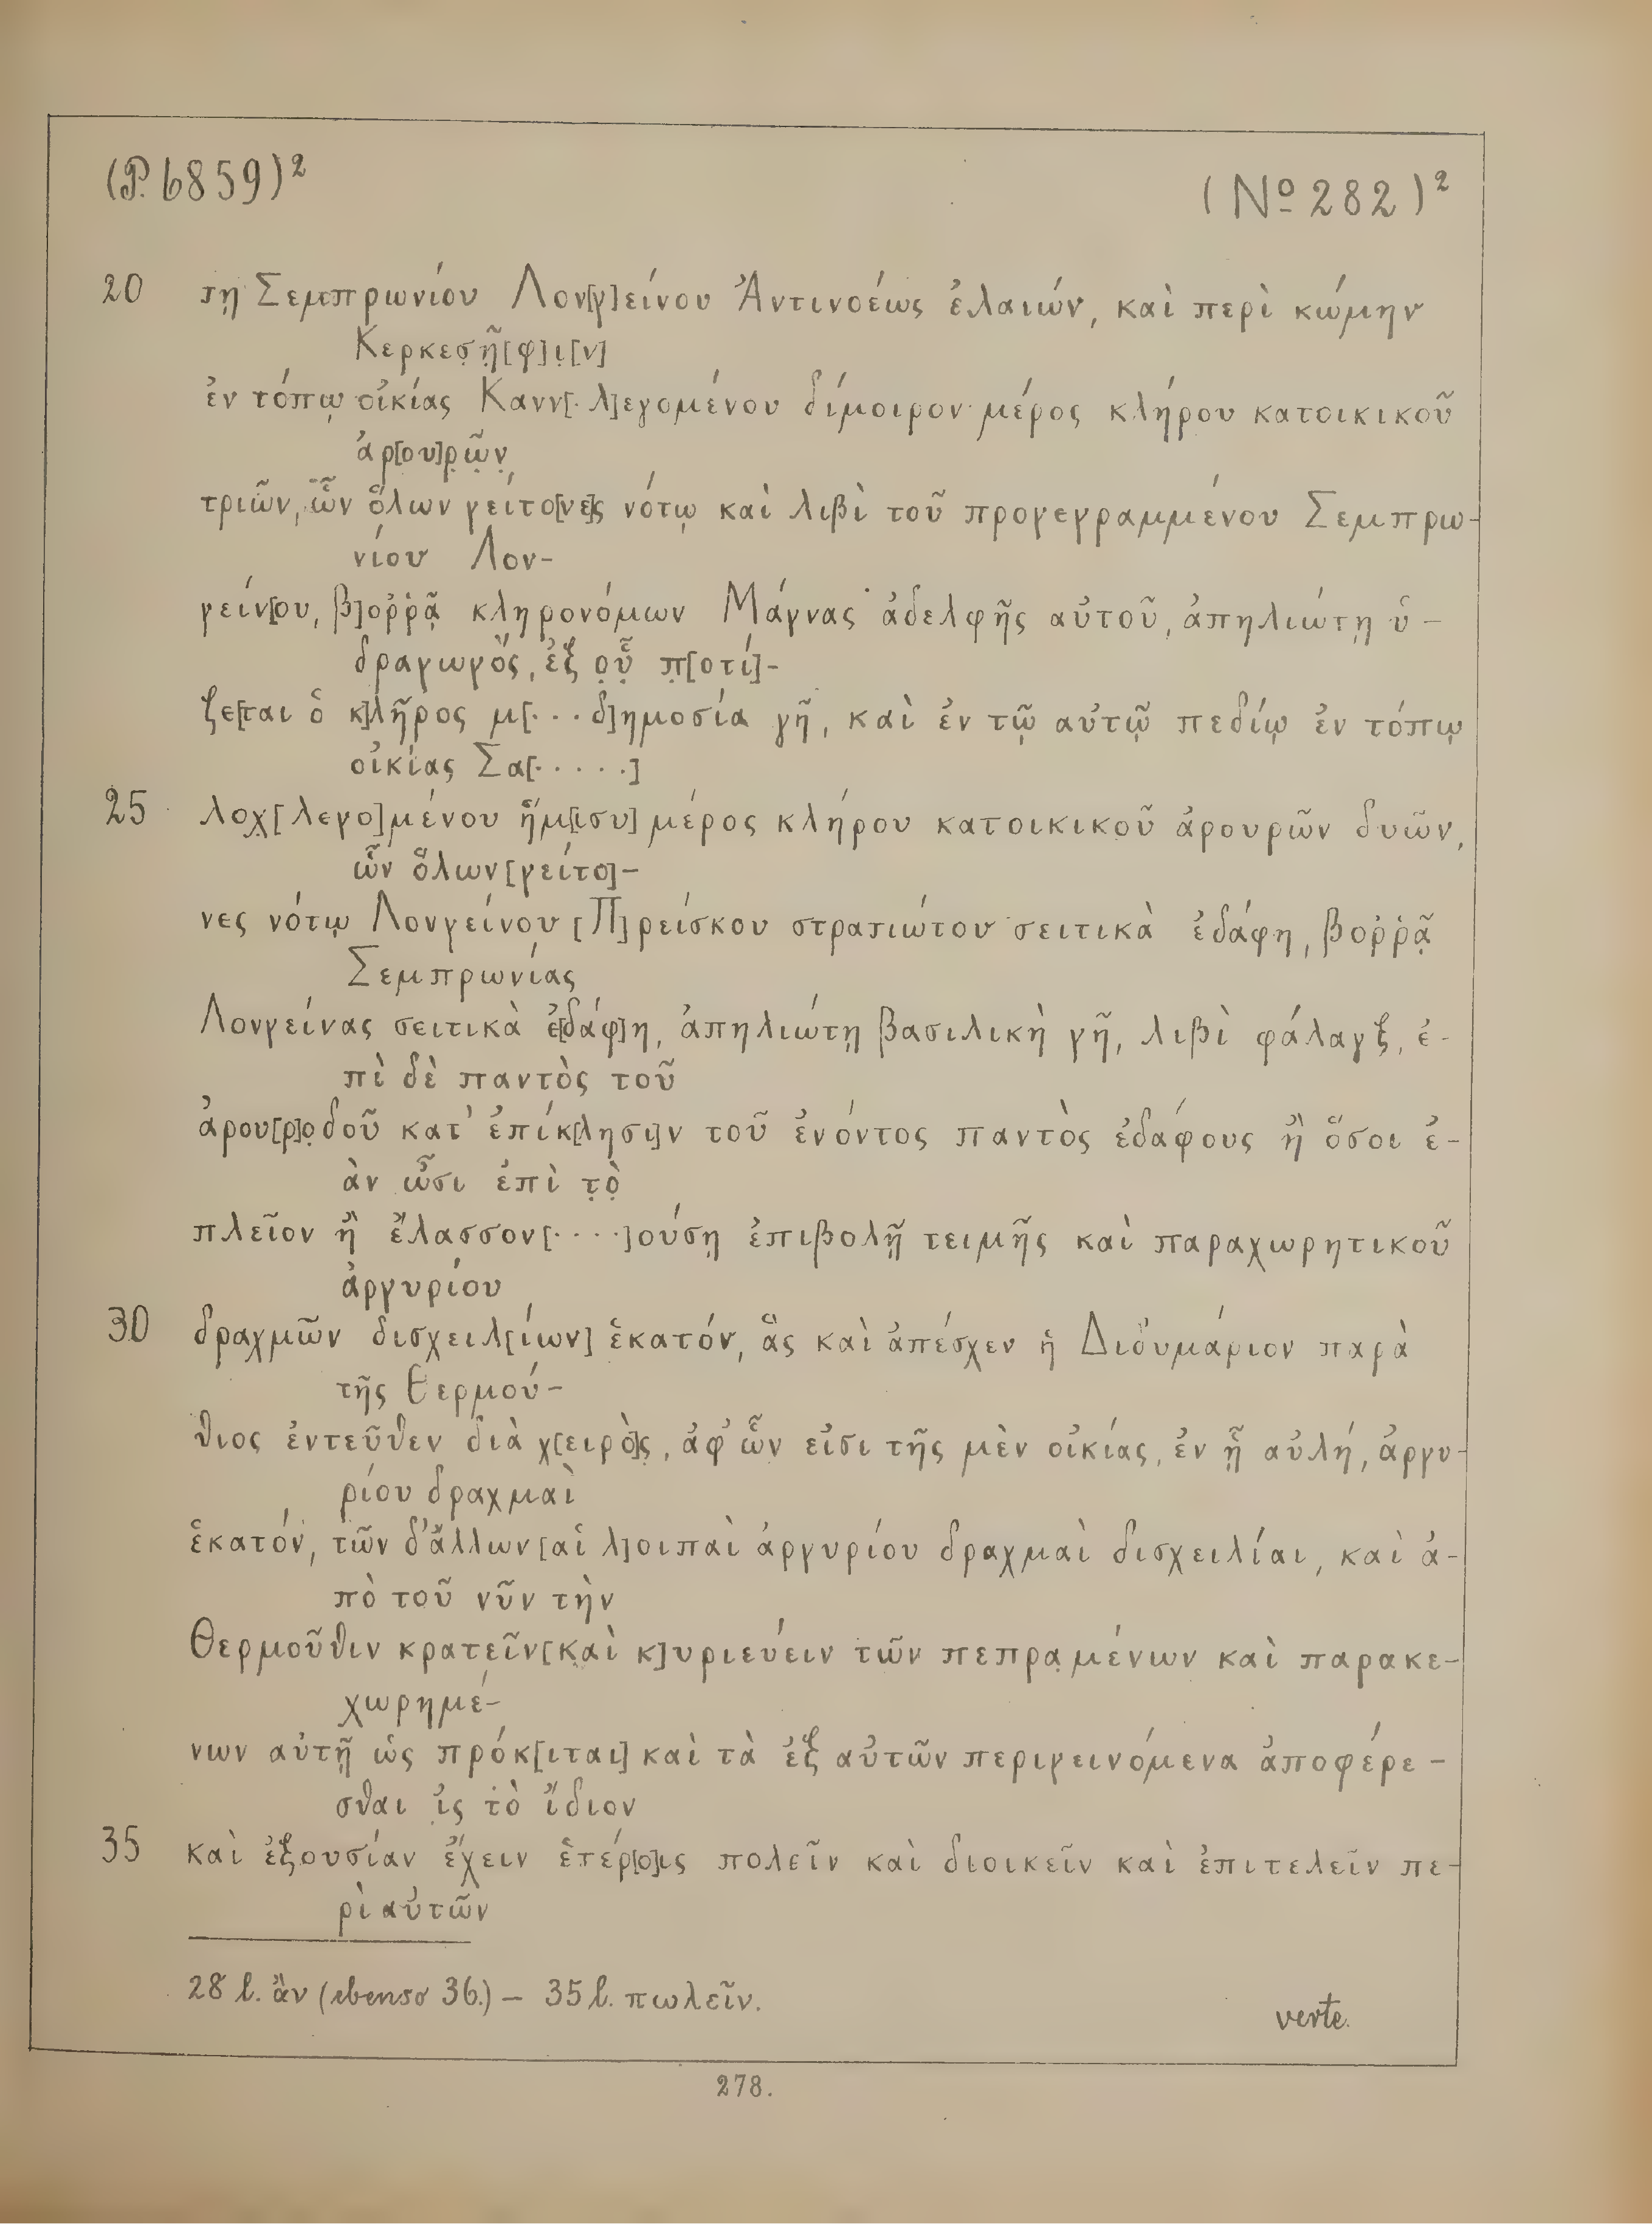 (P. 6859)²
(Nº 282)²
20 τῃ Σεμπρωνίου Λον[γ]είνου Ἀντινοέως ἐλαιών, καὶ περὶ κώμην
Κερκεσ̣ῆ̣[φ]ι̣[ν]
ἐν τόπῳ οἰκίας Κανν[· λ]εγομένου δίμοιρον μέρος κλήρου κατοικικοῦ
ἀρ[ου]ρ̣ῶ̣ν̣
τριῶν, ὧν ὅλων γείτο[νε]ς νότῳ καὶ λιβὶ τοῦ προγεγραμμένου Σεμπρω-
νίου Λον-
γείν[ου, β]οῤῥᾷ κληρονόμων Μάγνας ἀδελφῆς αὐτοῦ, ἀπηλιώτῃ ὑ-
δραγωγὸς, ἐξ ο̣ὗ̣ π̣[οτί]-
ζε[ται ὁ κ]λῆρος μ[··· δ]ημοσία γῆ, καὶ ἐν τῷ αὐτῷ πεδίῳ ἐν τόπῳ
οἰκίας Σα[·····]
25 λοχ[λεγο]μένου ἥμ[ισυ] μέρος κλήρου κατοικικοῦ ἀρουρῶν δυῶν,
ὧν ὅλων [γείτο]-
νες νότῳ Λονγείνου [Π]ρείσκου στρατιώτου σειτικὰ ἐδάφη, βοῤῥᾷ
Σεμπρωνίας
Λονγείνας σειτικὰ ἐ[δάφ]η, ἀπηλιώτῃ βασιλικὴ γῆ, λιβὶ φάλαγξ, ἐ-
πὶ δὲ παντὸς τοῦ
ἀρου[ρ]ο̣δοῦ κατ᾽ ἐπίκ[λησι]ν τοῦ ἐνόντος παντὸς ἐδάφους ἢ ὅσοι ἐ-
ὰν ὦσι ἐπὶ τ̣ὸ̣
πλεῖον ἢ ἔλασσον[····]ούσῃ ἐπιβολῇ τειμῆς καὶ παραχωρητικοῦ
ἀργυρίου
30 δραχμῶν δισχειλ[ίων] ἑκατόν, ἃς καὶ ἀπέσχεν ἡ Διδυμάριον παρὰ
τῆς Θερμού-
θιος ἐντεῦθεν διὰ χ[ειρὸ]ς, ἀφ᾽ ὧν εἰσι τῆς μὲν οἰκίας, ἐν ᾗ αὐλή, ἀργυ-
ρίου δραχμαὶ
ἑκατόν, τῶν δ᾽ἄλλων [αἱ λ]οιπαὶ ἀργυρίου δραχμαὶ δισχειλίαι, καὶ ἀ-
πὸ τοῦ νῦν τὴν
Θερμοῦθιν κρατεῖν [καὶ κ]υριεύειν τῶν πεπραμένων καὶ παρακε-
χωρημέ-
νων αὐτῇ ὡς πρόκ[ιται] καὶ τὰ ἐξ αὐτῶν περιγεινόμενα ἀποφέρε-
σθαι ἰς τὸ ἴδιον
35 καὶ ἐξουσίαν ἔχειν ἑτέρ[ο]ις πολεῖν καὶ διοικεῖν καὶ ἐπιτελεῖν πε-
ρὶ αὐτῶν
28 l. ἂν (ebenso 36.) – 35 l. πωλεῖν.
verte.
278.